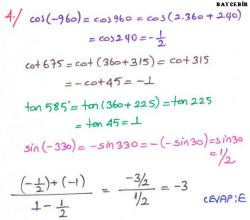 BAYCEBİR
4./ cos(-960) = cos960 = cos(2.360+240)
= cos240 = -1/2
cot675 = cot(360+315) = cot315
= -cot45 = -1
tan585° = tan(360+225) = tan225
= tan45 = 1
sin(-330) = -sin330 = -(-sin30) = sin30
= 1/2
(-1/2)+(-1) / 1-1/2 = -3/2 / 1/2 = -3
CEVAP:E